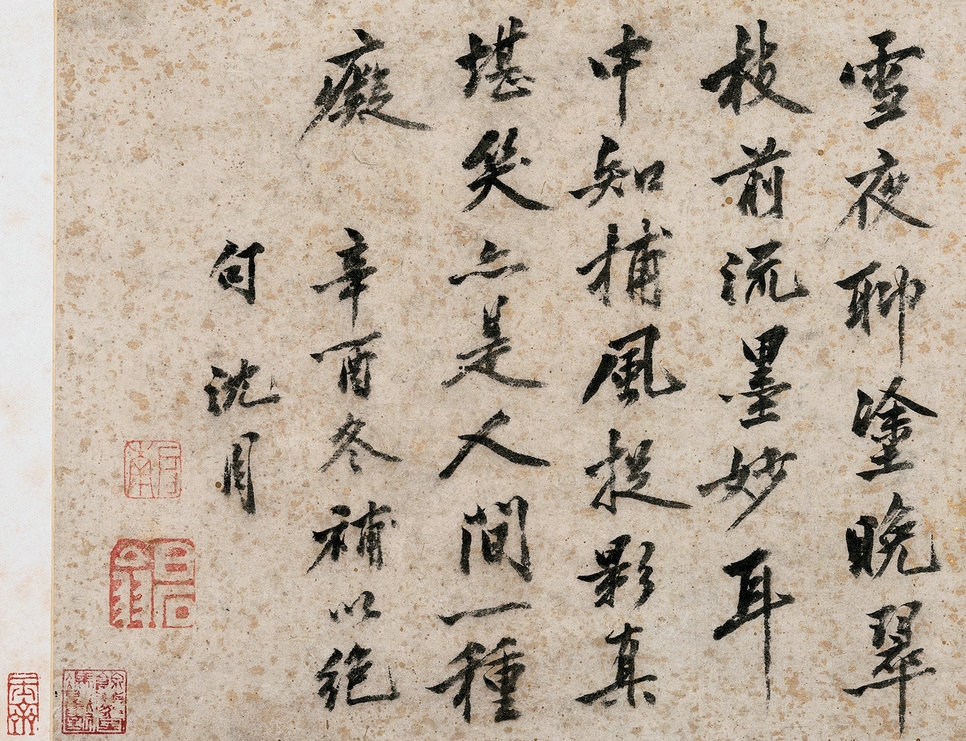 雪夜聊塗晚翠
枝前流墨妙耳
中知捕風捉影真
堪笑亦是人間一種
癡
辛酉冬補以絕
句沈周
啟南
白石翁